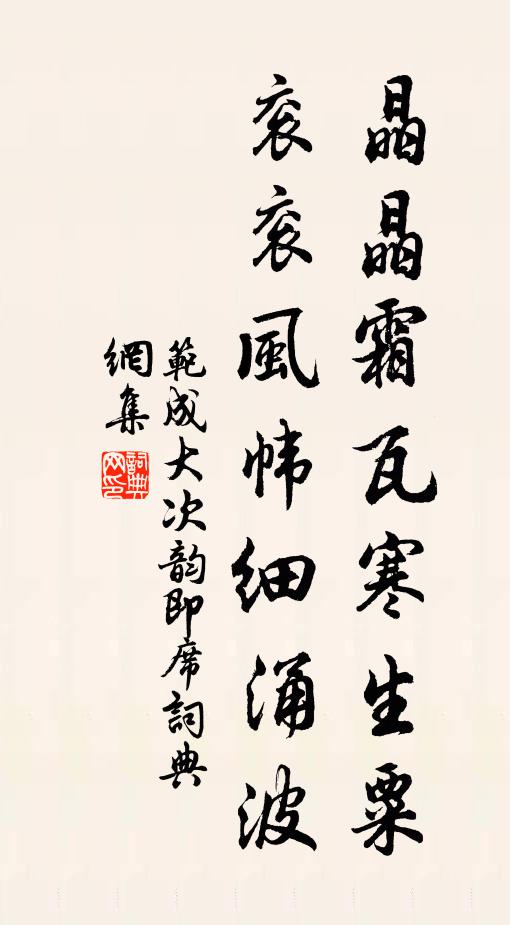 晶晶霜瓦寒生粟
衮衮風幃細涌波
範成大次韵即席詞典
網集
詞典
网印